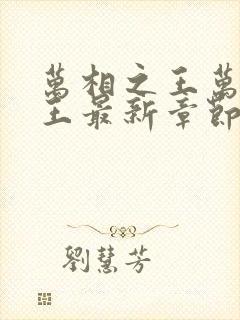 萬相之王萬
王最新章節
劉慧芳